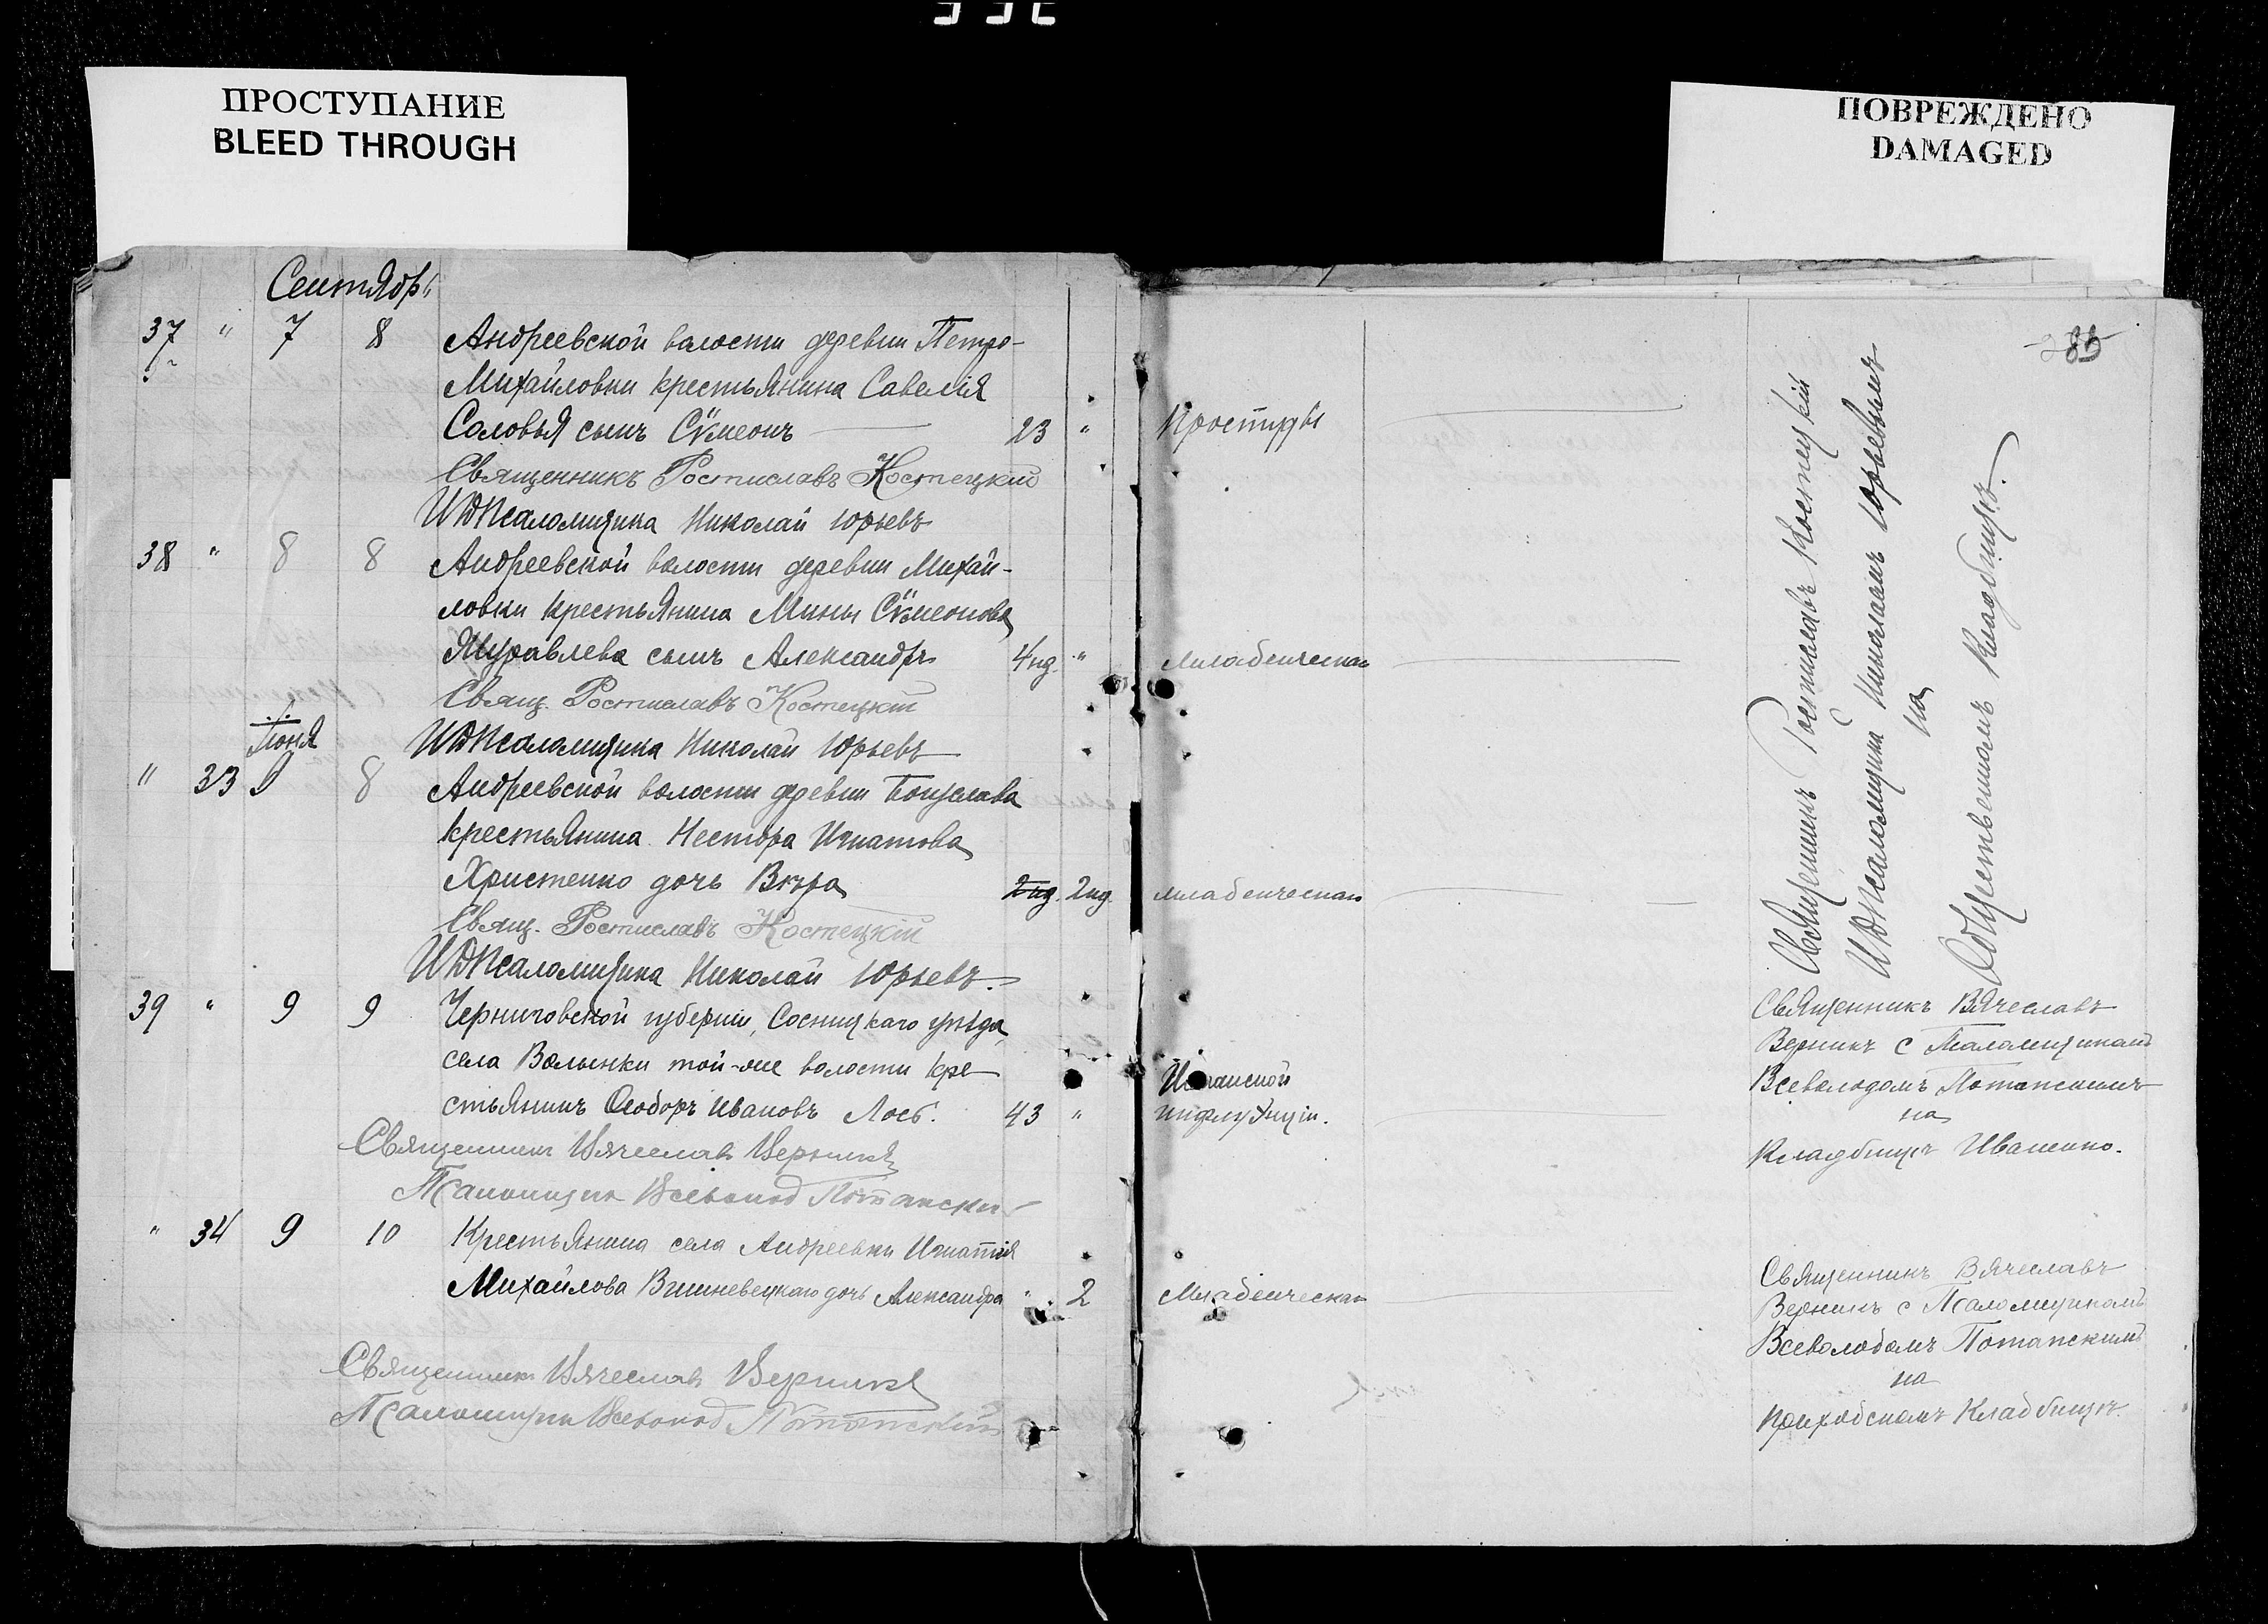 ПРОСТУПАНИЕ
BLEED THROUGH
ПОВРЕЖДЕНО
DAMAGED
Сентябрь
37 " 7 8 Андреевской волости деревни Петро-
Михайловки крестьянина Савелія
Соловья сынъ Сѵмеонъ 23 " Простуды
Священникъ Ростиславъ Костецкій
ИДПсаломщика Николай Юрьевъ
38 " 8 8 Андреевской волости деревни Михай-
ловки крестьянина Мины Сѵмеонова
Журавлева сынъ Александръ 4 нд. " младенческая
Свящ. Ростиславъ Костецкій
ИДПсаломщика Николай Юрьевъ
" 33 8 Андреевской волости деревни Богуслава
крестьянина Нестора Игнатова
Христенко дочь Вѣра 2 нд. 2 нд. младенческая
Свящ. Ростиславъ Костецкій
ИДПсаломщика Николай Юрьевъ.
39 " 9 9 Черниговской губерніи, Сосницкаго уѣзда,
села Волынки той-же волости кре-
стьянинъ Ѳеодоръ Ивановъ Лось. 43 " Испанской инфлуэнціи.
Священникъ Вячеславъ Верникъ
Псаломщикъ Всеволод Потапски
" 34 9 10 Крестьянина села Андреевки Игнатія
Михайлова Вишневецкаго дочь Александра " 2 Младенческая
Священникъ Вячеславъ Верникъ
Псаломщикъ Всеволод Потапскій
Священникъ Ростиславъ Костецкій
ИДПсаломщика Николаемъ Юрьевымъ
на
Общественномъ кладбищѣ.
Священникъ Вячеславъ
Верникъ с Псаломщикомъ
Всеволодомъ Потапскимъ
на
Кладбищѣ Иваненко.
Священникъ Вячеславъ
Верникъ с Псаломщикомъ
Всеволодомъ Потапскимъ
на
приходскомъ кладбищѣ.